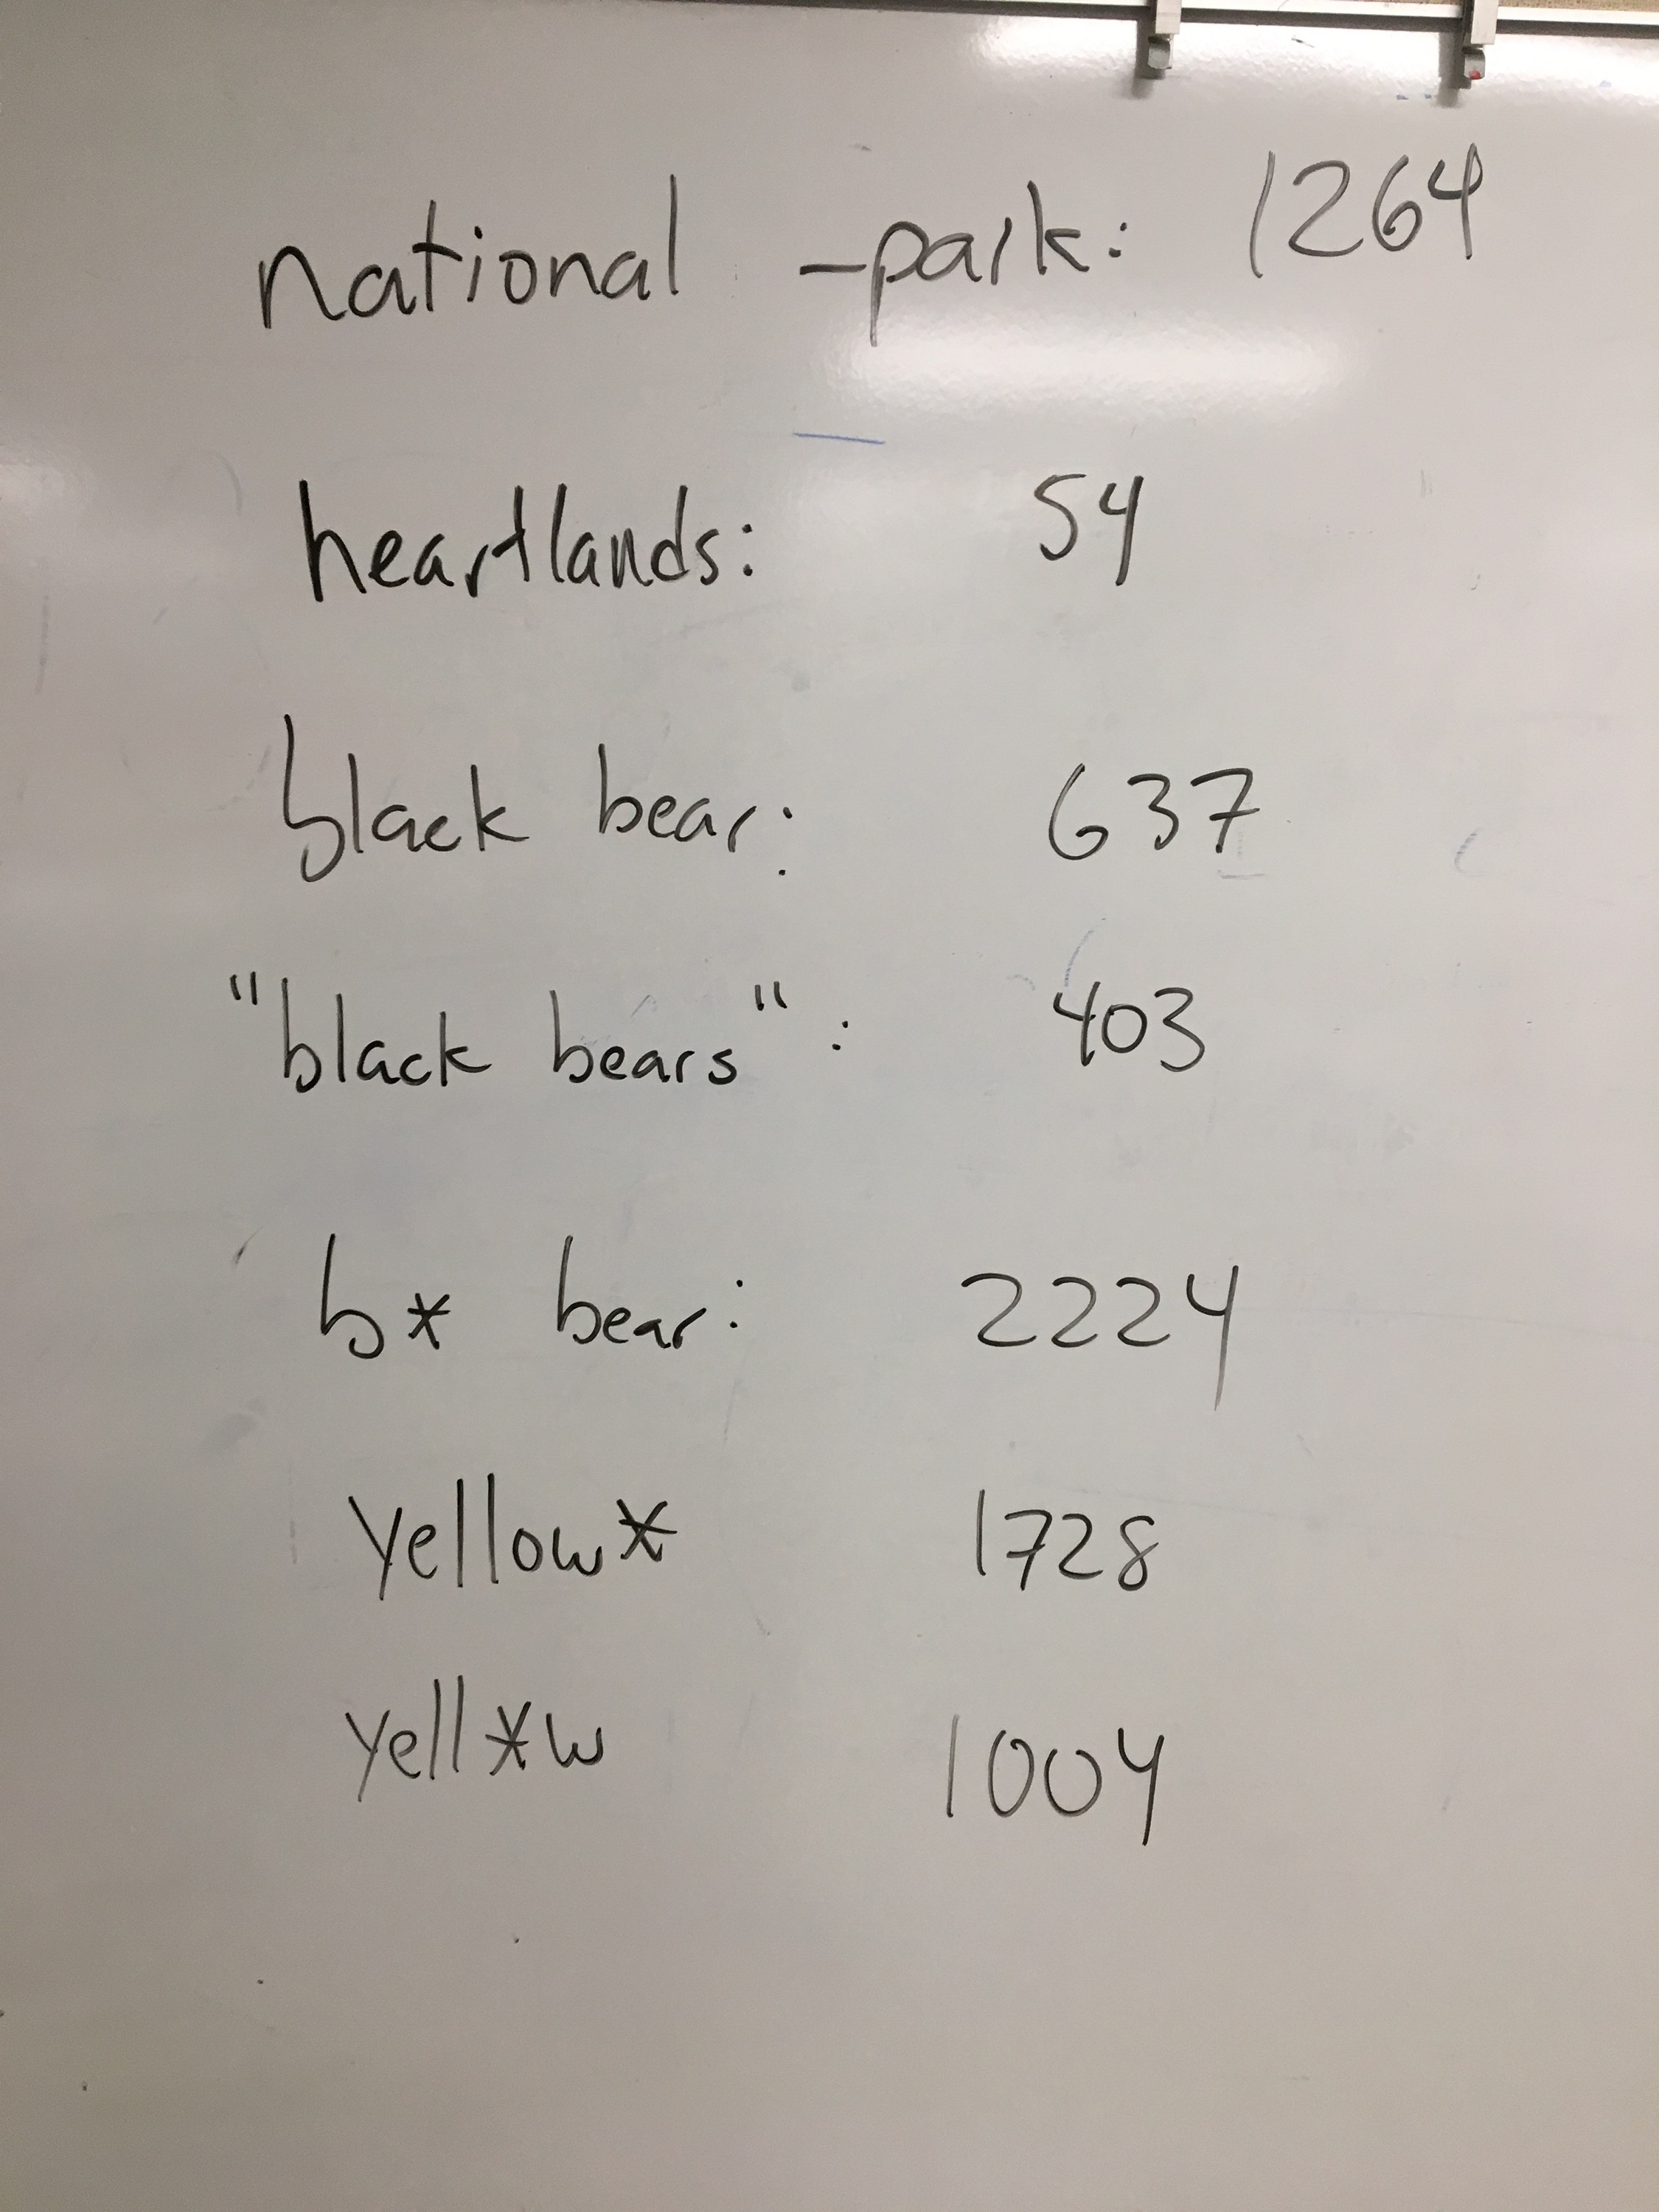 national -park: 1264
heartlands: 54
black bear: 637
"black bears": 403
b* bear: 2224
yellow* 1728
yell*w 1004